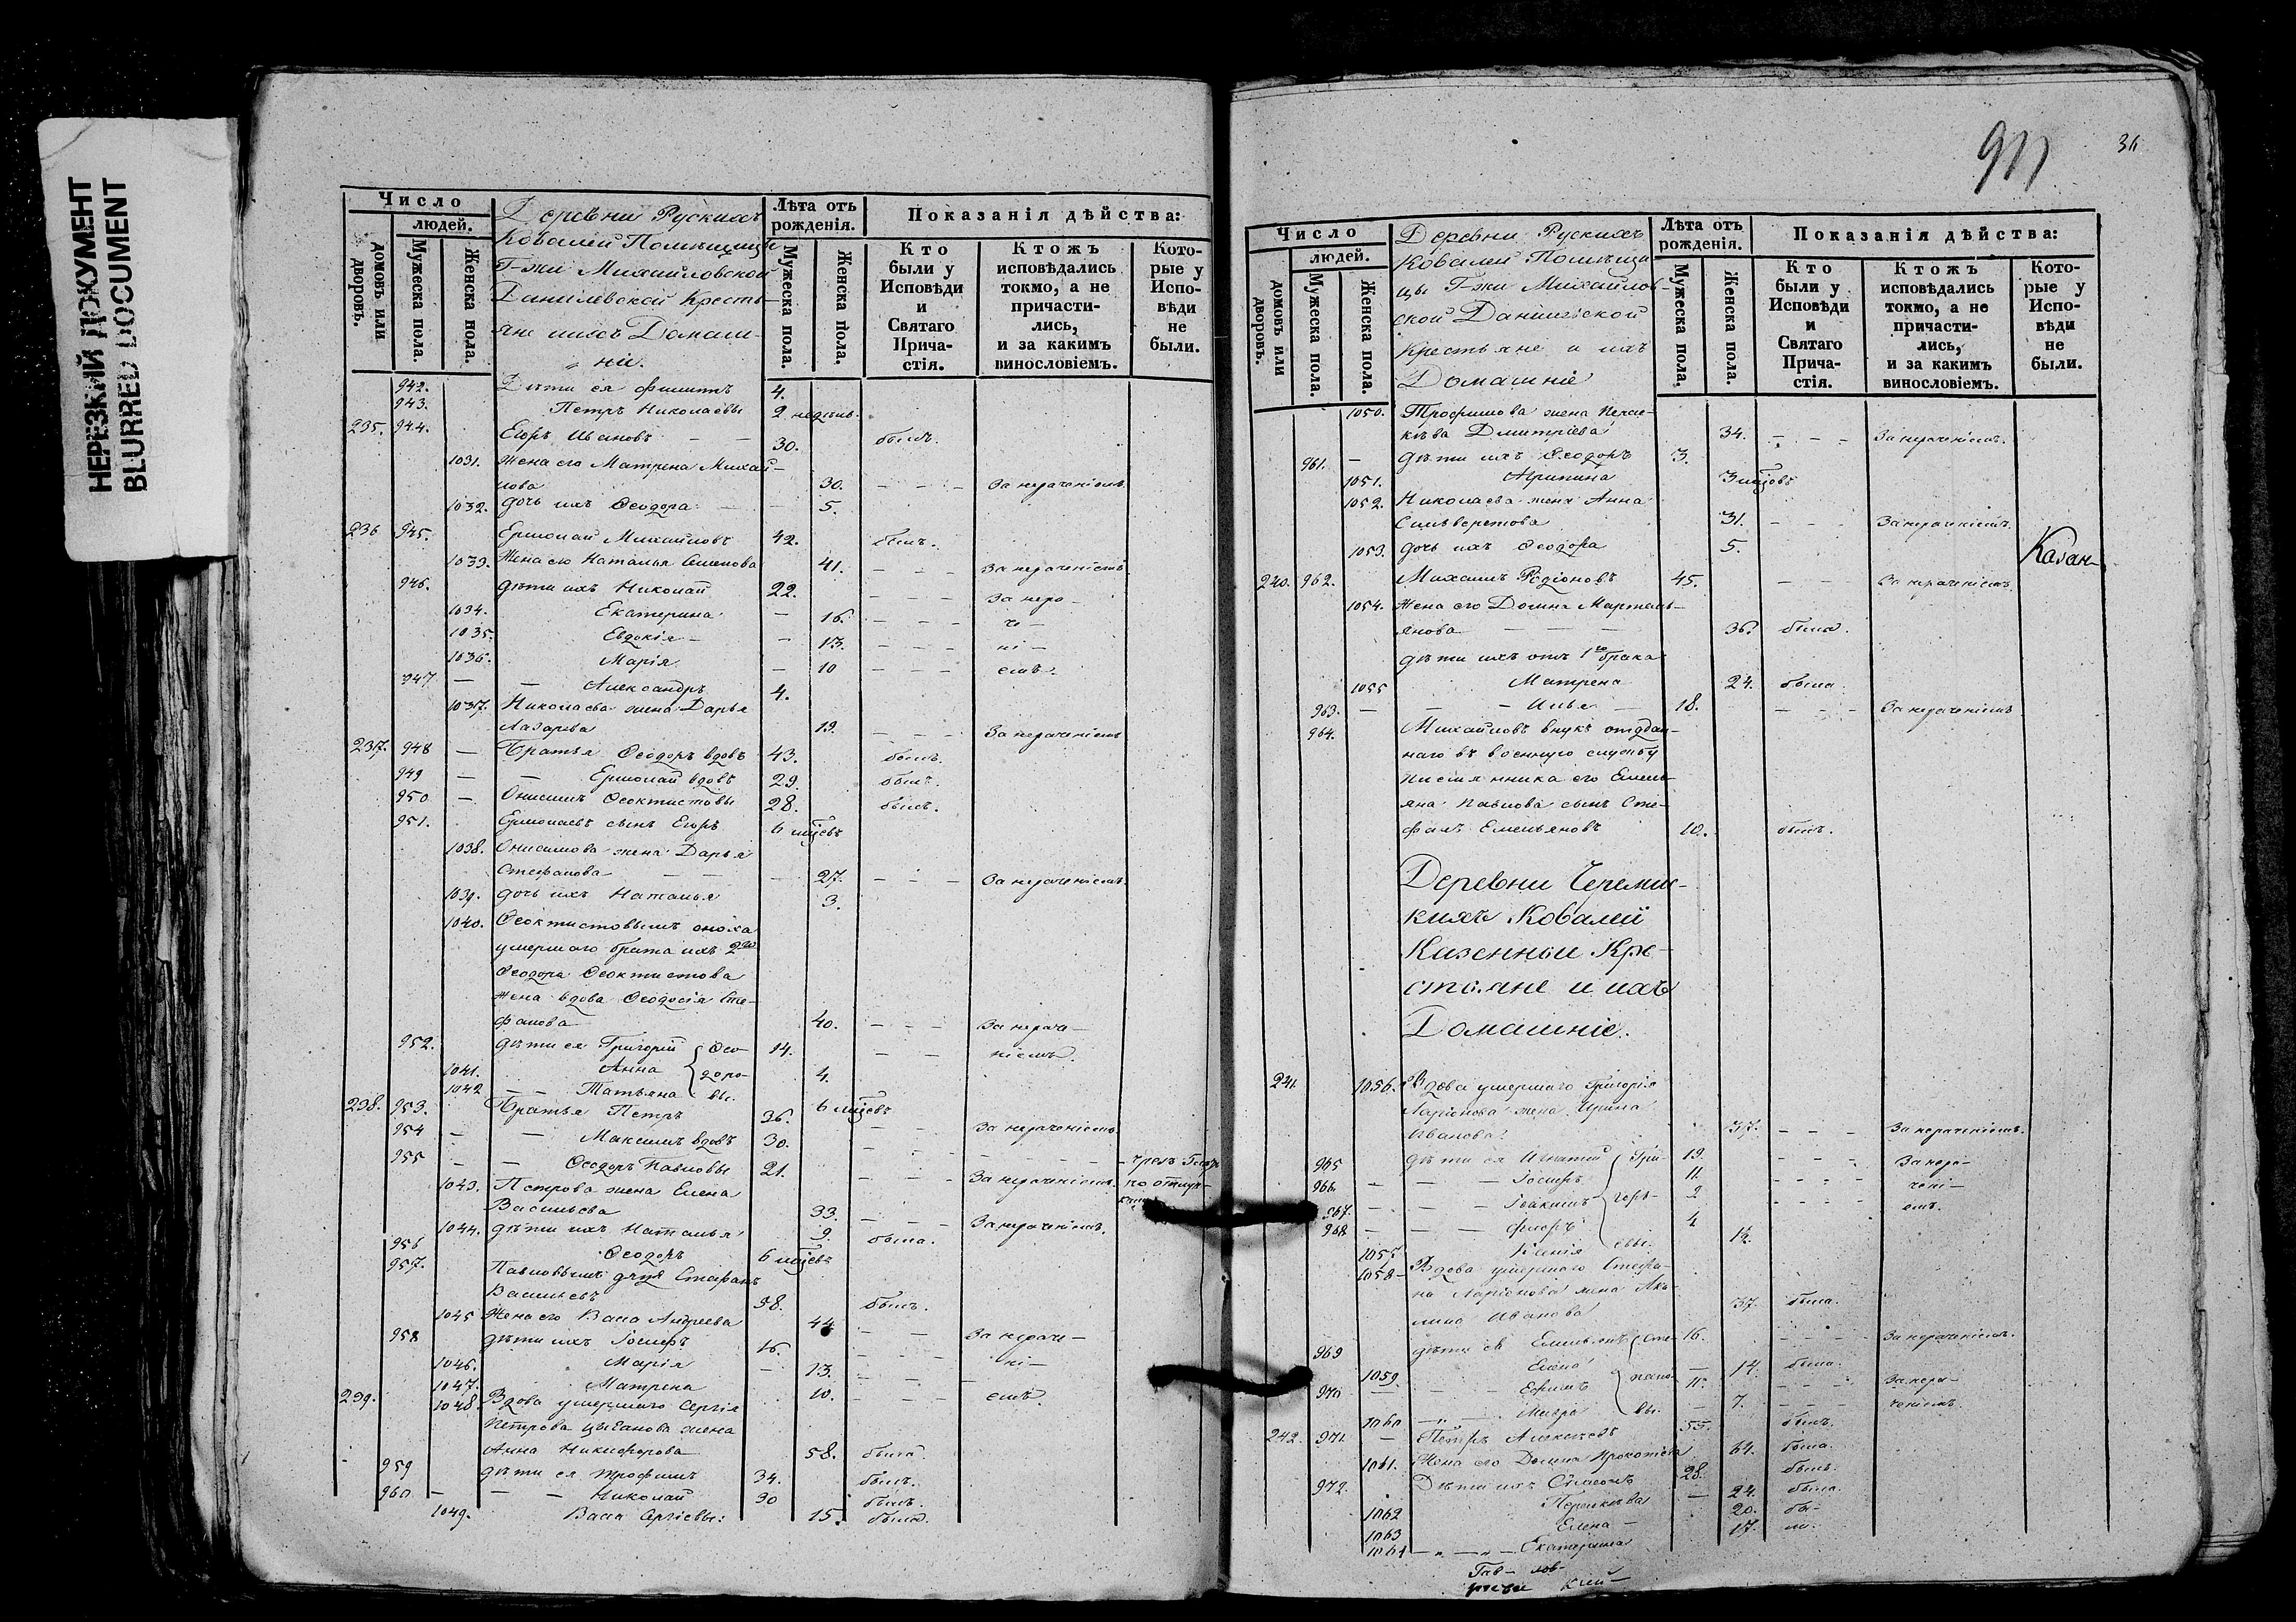 НЕРЕЗКИЙ ДОКУМЕНТ
BLURRED DOCUMENT
Число
людей.
домовъ или дворовъ.
Мужеска пола.
Женска пола.
Деревни Рускихъ
Ковалей Помѣщицы
Г-жи Михайловской
Данилевской Кресть-
яне ихъ Домаш-
ни.
Лѣта отъ рожденія.
Мужеска пола.
Женска пола.
Показанія дѣйства:
Кто были у Исповѣди и Святаго Прича-стія.
Ктожъ исповѣдались токмо, а не причасти-лись, и за какимъ винословіемъ.
Кото-рые у Испо-вѣди не были.
942. Дѣти ея Филиппъ 4.
943. Петръ Николаевы 2 недѣль.
235. 944. Егоръ Ивановъ 30. былъ.
1031. Жена его Матрена Михай-
лова 30. За нераченіемъ.
1032. дочь ихъ Ѳеодора 5.
236 945. Ермолай Михайловъ 42. былъ.
1033. Жена его Наталья Семенова 41. За нераченіемъ.
946. дѣти ихъ Николай 22. За нера-
1034. Екатерина 16. че-
1035. Евдокія 13. ні-
1036. Марія 10 емъ.
947 Александръ 4.
1037. Николаева жена Дарья
Лазарева 19. За нераченіемъ
237. 948 Братья Ѳеодоръ вдовъ 43. былъ.
949 Ермолай вдовъ 29. былъ.
950 Онисимъ Ѳеоктистовы 28. былъ.
951. Ермолаевъ сынъ Егоръ 6 мцовъ
1038. Онисимова жена Дарья
Стефанова 27. За нераченіемъ.
1039. дочь ихъ Наталья 3.
1040. Ѳеоктистовымъ сноха
умершаго брата ихъ 2го
Ѳеодора Ѳеоктистова
жена вдова Ѳеодосія Сте-
фанова 40. За нераче-
952. дѣти ея Григорій Ѳео- 14. ніемъ.
1041. Анна доро- 4.
1042 Татьяна вы. 6 мцовъ
238. 953. Братья Петръ 36. За нераченіемъ.
954 Максимъ вдовъ 30.
955 Ѳеодоръ Павловы 21. За нераченіемъ. по отлуч-
1043. Петрова жена Елена
Васильева 33. За нераченіемъ.
1044. дѣти ихъ Наталья 9. была.
956 Ѳеодоръ 6 мцовъ
957. Павловымъ дядя Стефанъ
Васильевъ 58. былъ.
1045 Жена его Васа Андреева 44
958 дѣти ихъ Іосифъ 16. За нераче-
1046. Марія 13. ні-
1047. Матрена 10. емъ.
239. 1048. Вдова умершаго Сергія
Петрова Цыганова жена
Анна Никифорова 58. была.
959 дѣти ея Трофимъ 34. былъ.
960 Николай 30 былъ.
1049. Васа Сергіевы: 15. была.
977
36
Число
людей.
домовъ или дворовъ.
Мужеска пола.
Женска пола.
Деревни Рускихъ
Ковалей Помѣщи
цы Г-жи Михайлов-
ской Данилевской
Крестьяне и ихъ
Домашніе
Лѣта отъ рожденія.
Мужеска пола,
Женска пола.
Показанія дѣйства:
Кто были у Исповѣди и Святаго Прича-стія.
Ктожъ исповѣдались токмо, а не причасти-лись, и за какимъ винословіемъ.
Кото-рые у Испо-вѣди не были.
1050. Трофимова жена Перас-
кѣва Дмитріева 34. За нераченіемъ.
961. дѣти ихъ Ѳеодоръ 3.
1051. Агрипина 3 мцовъ
1052. Николаева жена Анна
Сильверстова 31. За нераченіемъ.
1053. дочь ихъ Ѳеодора 5.
Казан-
240. 962. Михаилъ Родіоновъ 45. За нераченіемъ.
1054. Жена его Домна Мартемь-
янова 36. была.
дѣти ихъ отъ 1го брака
1055 Матрена 24. была.
963. Илья 18. За нераченіемъ
964. Михайловъ внукъ отдан-
наго въ военную службу
племянника его Емель-
яна Павлова сынъ Сте-
фанъ Емельяновъ 10. былъ.
Деревни Черемис-
кихъ Ковалей
Казенныи Кре-
стьяне и ихъ
Домашніе.
241. 1056. Вдова умершаго Григорія
Ларіонова жена Ирина
Иванова 37. За нераченіемъ.
965 дѣти ея Игнатій Гри- 19. За нера-
966. Іосифъ 11. чені-
967. Іоакимъ горь- 2 емъ.
968 Флоръ 4
1057 Ксенія евы. 12.
1058 Вдова умершаго Стефа-
на Ларіонова жена Аку-
лина Иванова 37. была.
969 дѣти ея Емельянъ Сте- 16. За нераченіемъ.
1059. Елена 14. была.
970 Ефимъ пано- 11. За нера-
1060 Мавра вы. 7. ченіемъ.
242. 971. Петръ Алексѣевъ 55. былъ.
1061. Жена его Домна Прокопіева 61. была.
972. Дѣти ихъ 28. былъ.
1062 Пераскѣва 24. была.
1063 Елена 20. бы-
1064 Екатерина 17. ли.